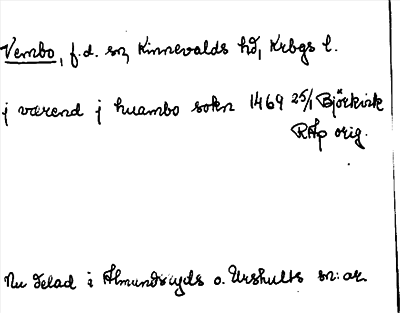 Vembo, f.d. sn, Kinnevalds hd, Krbgs l.
j værend j huambo sokn 1469 25/1 Björkvik
RAp orig.
Nu delad i Almundsryds o. Urshults sn:ar.